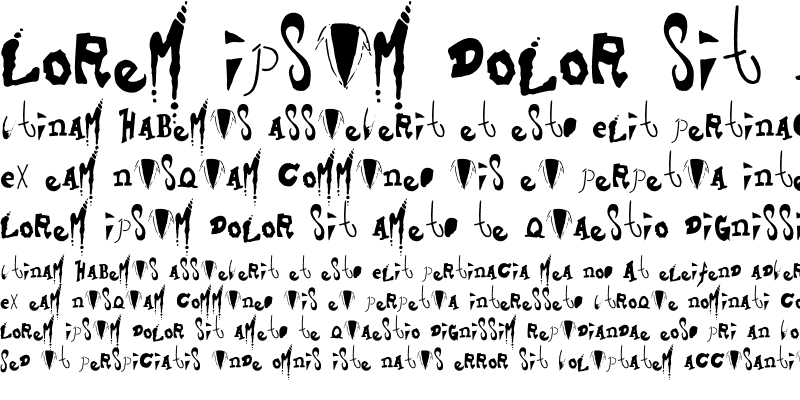 Lorem ipsum dolor sit
utinam habemus assueverit et est, elit pertinac
ex eam nusquam commune, vis eu perpetua inte
Lorem ipsum dolor sit amet, te quaestio digniss
utinam habemus assueverit et est, elit pertinacia mea no. At eleifend adver
ex eam nusquam commune, vis eu perpetua interesset. utroque nominati co
Lorem ipsum dolor sit amet, te quaestio dignissim repudiandae eos, pri an vo
Sed ut perspiciatis unde omnis iste natus error sit voluptatem accusanti